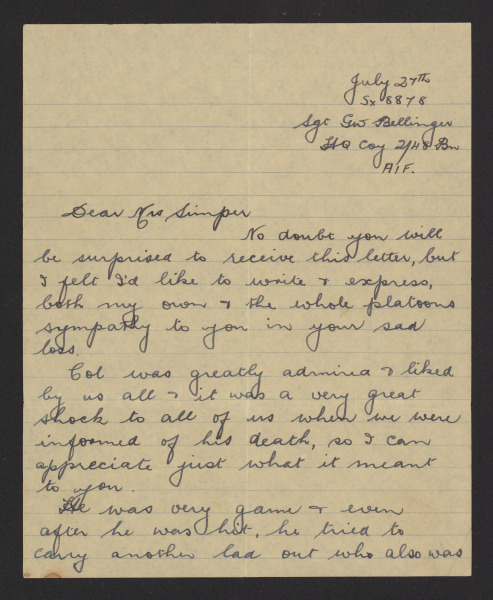 July 27th
Sx 8878
Sgt GW Bellinger
HQ Coy 2/48 Bn
AIF.
Dear Mrs Simper
No doubt you will
be surprised to receive this letter, but
I felt I'd like to write & express,
both my own & the whole platoons
sympathy to you in your sad
loss.
Col was greatly admired & liked
by us all & it was a very great
shock to all of us when we were
informed of his death, so I can
appreciate just what it meant
to you.
He was very game & even
after he was hit, he tried to
carry another lad out who also was